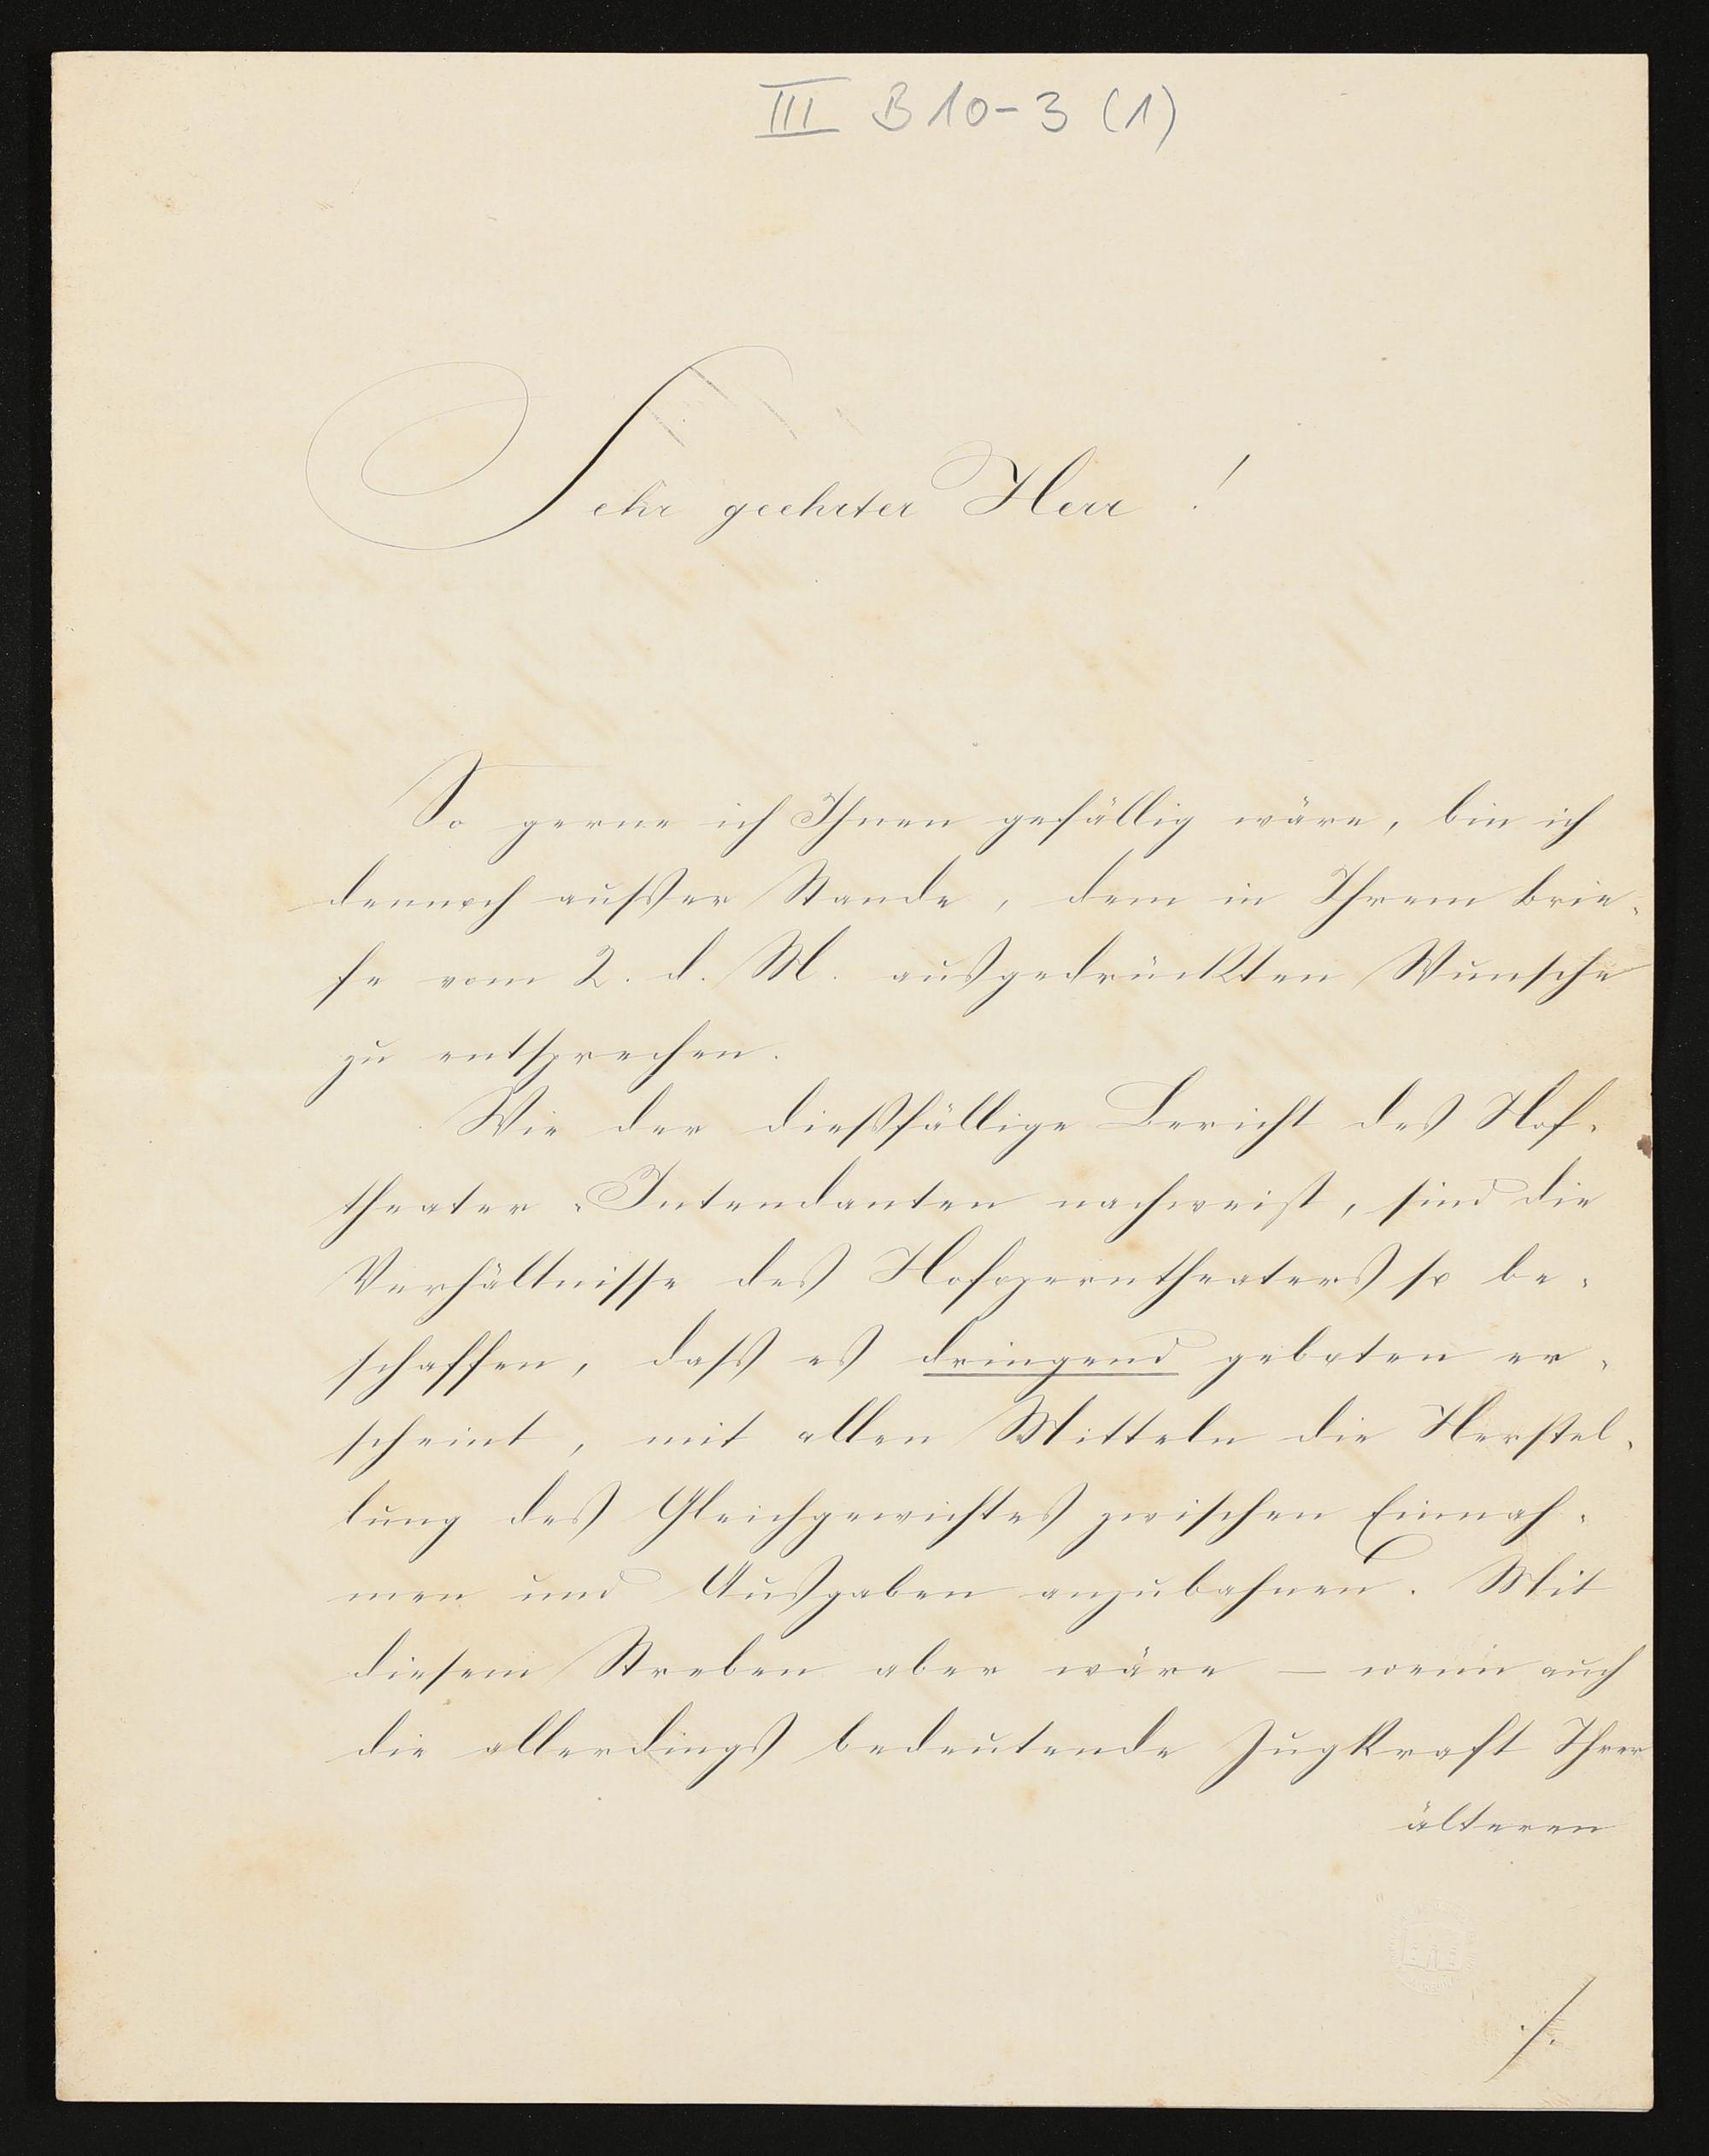 III B 10-3 (1)
Sehr geehrter Herr !
So gerne ich Ihnen gefällig wäre, bin ich
dennoch außer Stande, dem in Ihrem Brie-
fe vom 2. d. M. ausgedrückten Wunsche
zu entsprechen.
Wie der dießfällige Bericht des Hof-
theater-Intendanten nachweist, sind die
Verhältnisse des Hofoperntheaters so be-
schaffen, daß es dringend geboten er-
scheint, mit allen Mitteln die Herstel-
lung des Gleichgewichtes zwischen Einnah-
men und Ausgaben anzubahnen. Mit
diesem Streben aber wäre – wenn auch
die allerdings bedeutende Zugkraft Ihrer
älteren
./.